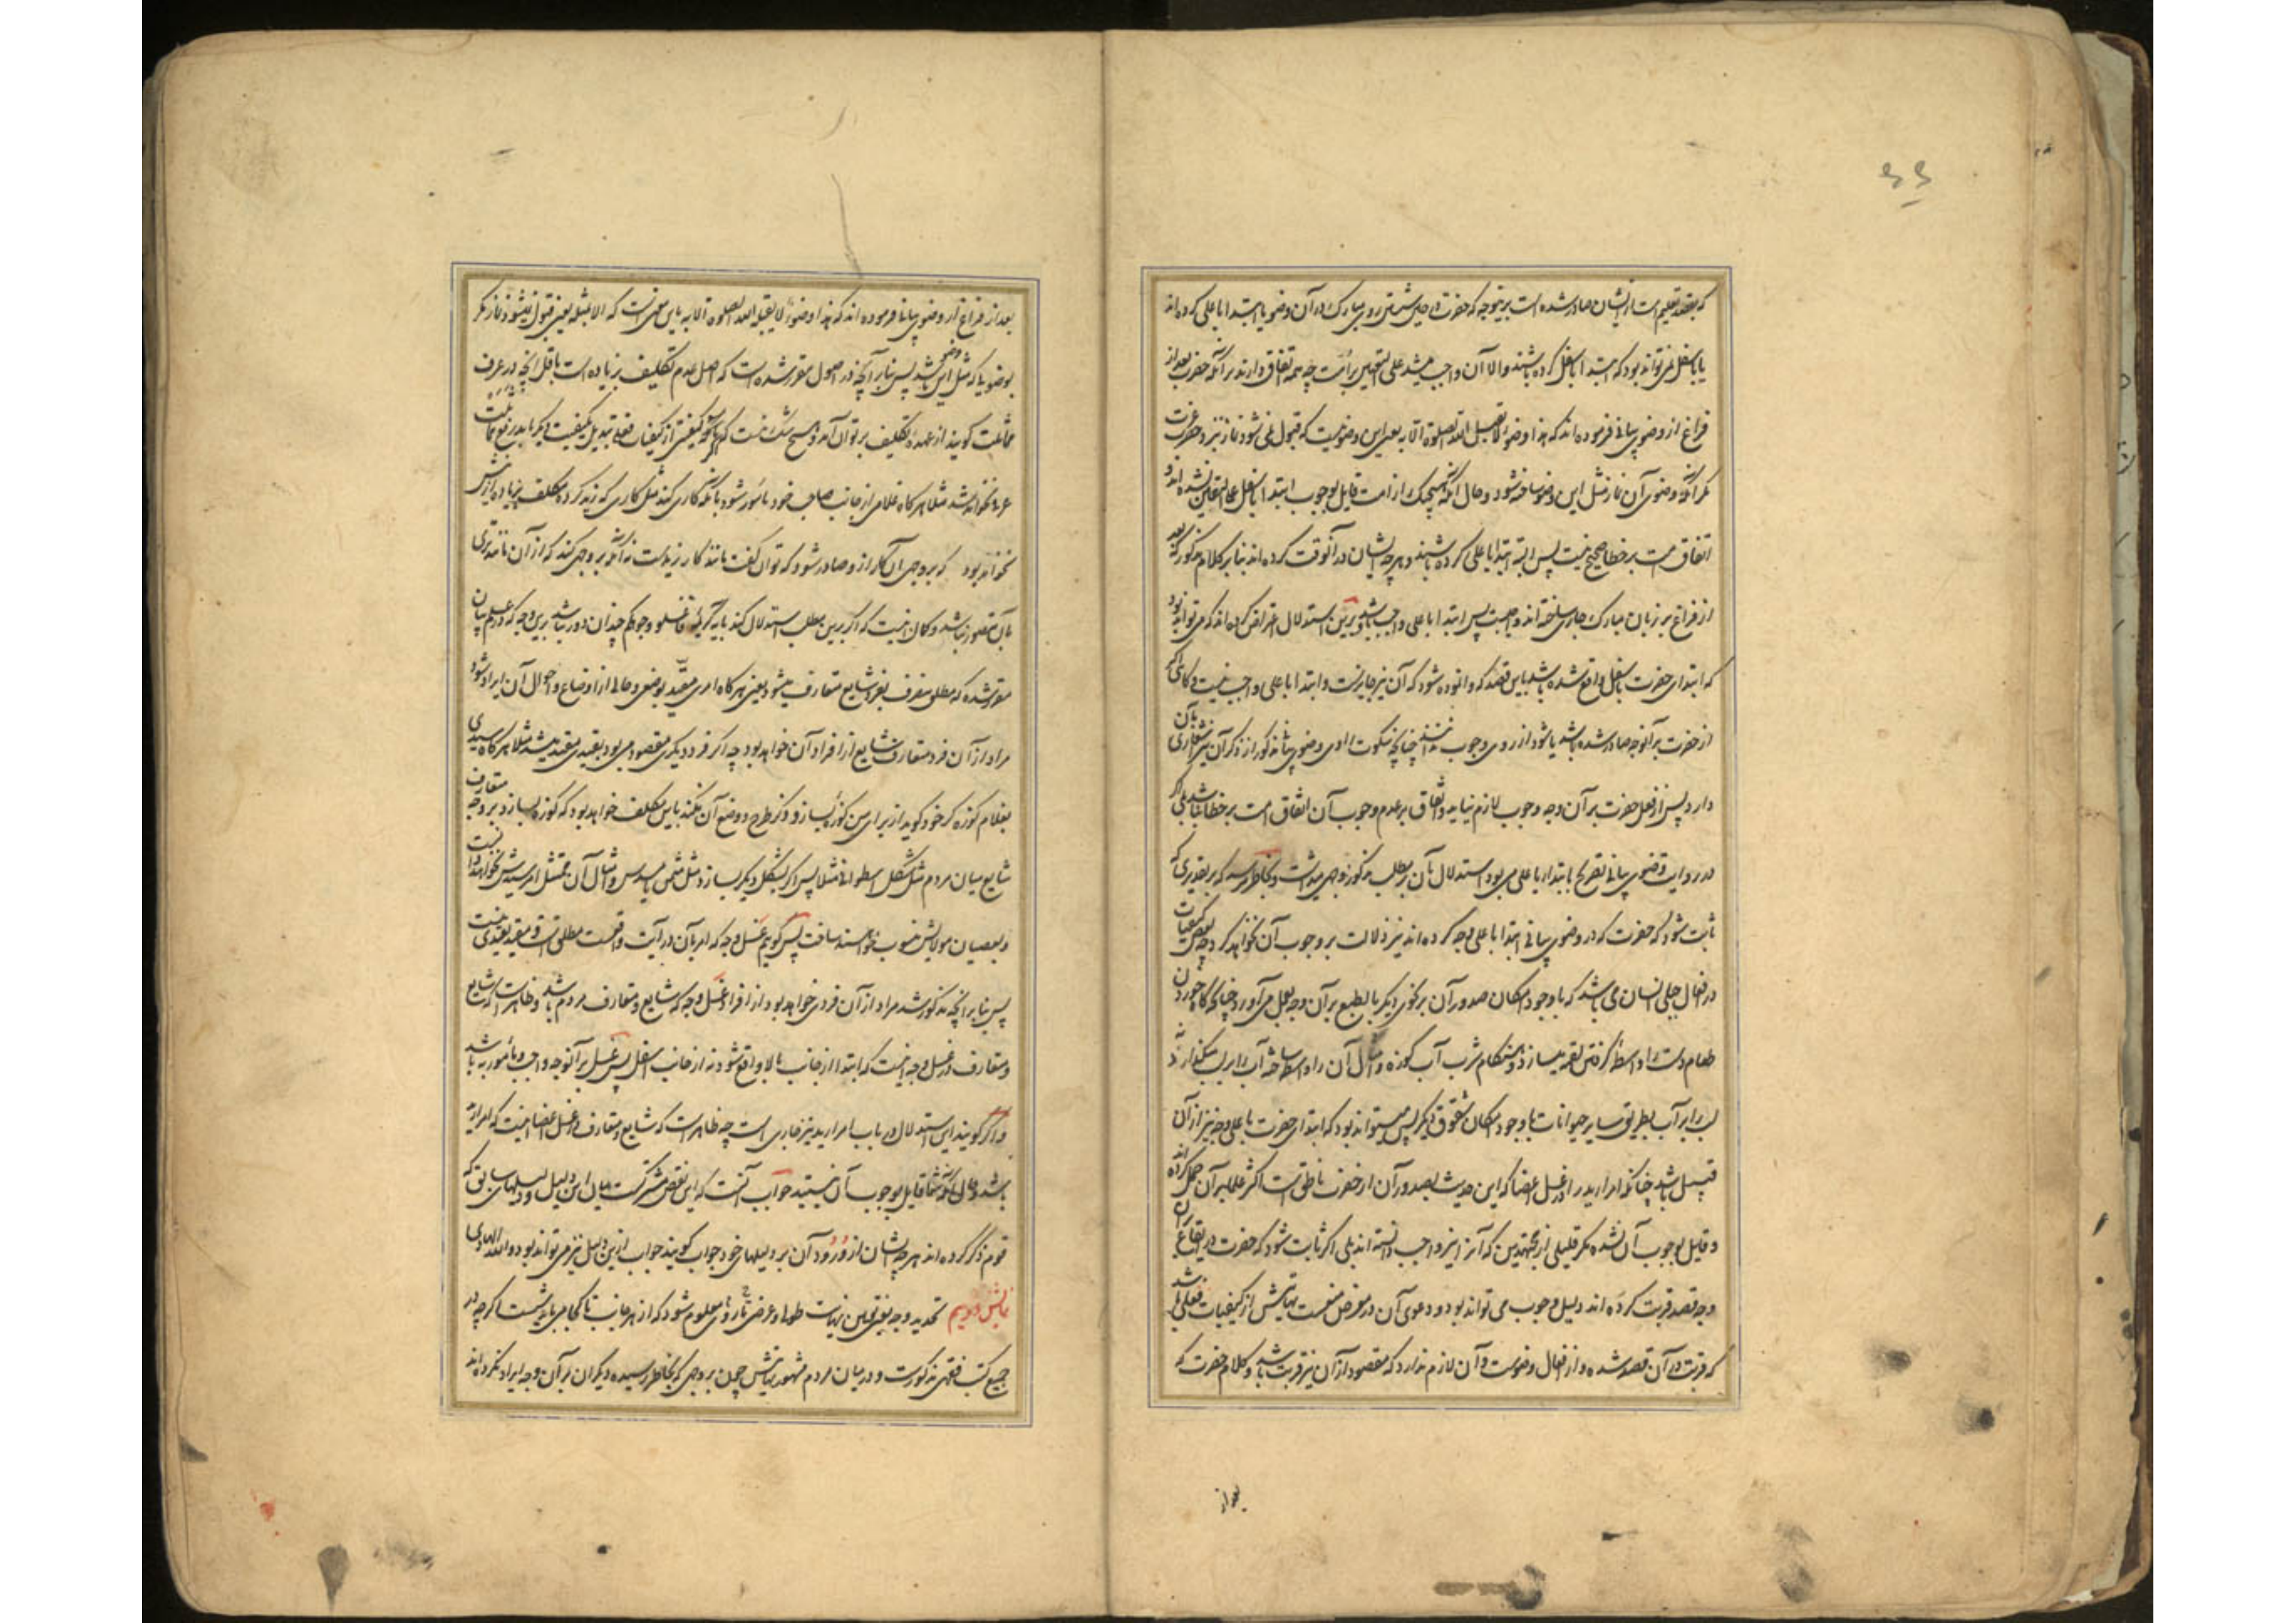 که بقصد تعلیم است از ایشان صادر شده است بر نحوی که حضرت در حین شستن روی مبارک در آن وضو یا ابتدا باعلی کرده‌اند
یا باسفل نمی‌تواند بود که ابتدا باسفل کرده باشند والا آن واجب میشد علی التعیین بر امت چه همه اتفاق دارند بر آنکه حضرت بعد از
فراغ از وضوی بیانی فرموده‌اند که هذا وضوء لا یقبل الله الصلوة الا به یعنی این وضوئیست که قبول نمی‌شود نماز نزد حضرت عزت
مگر آنکه وضوی آن نماز مثل این وضو ساخته شود و حال آنکه هیچیک از امت قایل بوجوب ابتدا باسفل علی التعیین نشده‌اند و
اتفاق امت بر خطا صحیح نیست پس البته ابتدا باعلی کرده باشند و هر چه ایشان در آنوقت کرده‌اند بنابر کلام مذکور که بعد
از فراغ بر زبان مبارک جاری ساخته‌اند واجبست پس ابتدا باعلی واجب باشد و برین استدلال اعتراض کرده‌اند که می‌تواند بود
که ابتدای حضرت باسفل واقع شده باشد باین قصد که وانموده شود که آن نیز جایز است و ابتدا باعلی واجب نیست و گاهی که
از حضرت بر آنوجه صادر شده باشد یا شود از روی وجوب ندانند چنانچه سکوت راوی وضوی بیانی مذکور از ذکر آن نیز اشعاری بآن
دارد پس از فعل حضرت بر آن وجه وجوب لازم نیاید و اتفاق بر عدم وجوب آن اتفاق امت بر خطا نباشد بلی اگر
در روایت وضوی بیانی تصریح بابتدا باعلی می‌بود استدلال بآن بر مطلب مذکور وجهی میداشت و بخاطر میرسد که بر تقدیری که
ثابت شود که حضرت که در وضوی بیانی ابتدا باعلی وجه کرده‌اند نیز دلالت بر وجوب آن نخواهد کرد چه بعض کیفیات
در افعال جبلی انسان می‌باشد که با وجود امکان صدور آن بر نحوی دیگر بالطبع بر آن وجه بعمل می‌آورد چنانچه گاه خوردن
طعام دست را واسطهٔ گرفتن لقمه میسازد و هنگام شرب آب کوزه و امثال آن را واسطه ساخته آب را بر لب میگذارد نه
لب را بر آب بطریق سایر حیوانات با وجود امکان شقوق دیگر پس میتواند بود که ابتدای حضرت باعلی وجه نیز از آن
قبیل باشد چنانکه امرار ید را در غسل اعضا که این حدیث بصدور آن از حضرت ناطق است اکثر علما بر آن حمل کرده‌اند
و قایل بوجوب آن نشده مگر قلیلی از مجتهدین که آنرا نیز واجب دانسته‌اند بلی اگر ثابت شود که حضرت در ایقاع آن
وجه قصد قربت کرده‌اند دلیل وجوب می‌تواند بود و دعوی آن در معرض منعست نهایتش از کیفیات فعلی باشد
که قربت در آن قصد شده و از افعال وضوست و آن لازم ندارد که مقصود از آن نیز قربت باشد و کلام حضرت که
بعد از
بعد از فراغ از وضوی بیانی فرموده‌اند که هذا وضوء لا یقبل الله الصلوة الا به باین معنی است که الا بمثله یعنی قبول نمیشود نماز مگر
بوضوئی که مثل این وضو باشد پس بنابر آنچه در اصول مقرر شده است که اصل عدم تکلیف بزیاده است باقل آنچه در عرف
مماثلت گویند از عهدهٔ تکلیف بر توان آمد و هیچ شک نیست که هر گونه کیفیتی از کیفیات فعلی تبدیل بکیفیت دیگر یابد رفع مماثلت
عرفا نخواهد شد مثلا هر گاه غلامی از جانب صاحب خود مأمور شود بآنکه کاری کند مثل کاری که زید کرده مکلف بزیاده ازین
نخواهد بود که بر وجهی آن کار از و صادر شود که توان گفت مانند کار زیدست نه آنکه بر وجهی کند که از آن مانندتری
بآن متصور نباشد و گمان اینست که اگر برین مطلب استدلال کنند بآیه کریمه فاغسلوا وجوهکم چندان دور نباشد برین وجه که در علم بیان
مقرر شده که مطلق منصرف بفرد شایع متعارف میشود یعنی هر گاه امری مقید بوضعی و حالی از اوضاع و احوال آن ایراد شود
مراد از آن فرد متعارف شایع از افراد آن خواهد بود چه اگر فرد دیگری مقصود می‌بود بقیدی مقید میشد مثلا هر گاه سیدی
بغلام کوزه‌گر خود گوید از برای من کوزهٔ بساز و ذکر طرح و وضع آن نکند باین مکلف خواهد بود که کوزه بسازد بر وجه متعارف
شایع میان مردم مثل شکل اسطوانه مثلا پس اگر بشکل دیگر بسازد مثل مثمن یا مسدس و امثال آن ممتثل امر سیدش نخواهند دانست
و بعصیان مولایش منسوب خواهند ساخت پس گوییم غسل وجه که امر بآن در آیت واقعست مطلق است و مقید بقیدی نیست
پس بنابر آنچه مذکور شد مراد از آن فردی خواهد بود از افراد غسل وجه که شایع و متعارف مردم باشد و ظاهر است که شایع
و متعارف در غسل وجه اینست که ابتدا از جانب بالا واقع شود نه از جانب اسفل پس غسل بر آنوجه واجب و مأمور به باشد
و اگر گویند این استدلال در باب امرار ید نیز جاری است چه ظاهر است که شایع و متعارف در غسل اعضا اینست که امرار ید
باشد و حال آنکه شما قایل بوجوب آن نیستید جواب آنست که این نقض مشترکست میان این دلیل و دلیلهای سابق که
قوم ذکر کرده‌اند هر چه ایشان از ورود آن بر دلیلهای خود جواب گویند جواب ازین دلیل نیز می‌تواند بود والله الهادی
تحدید وجه یعنی تعیین نهایت طولا و عرضا تا روی معلوم شود که از هر جانب تا کجا می‌باید شست اگر چه در
جمیع کتب فقهی مذکورست و در میان مردم مشهور نهایتش چون بر وجهی که بخاطر رسیده دیگران بر آن وجه ایراد نکرده‌اند